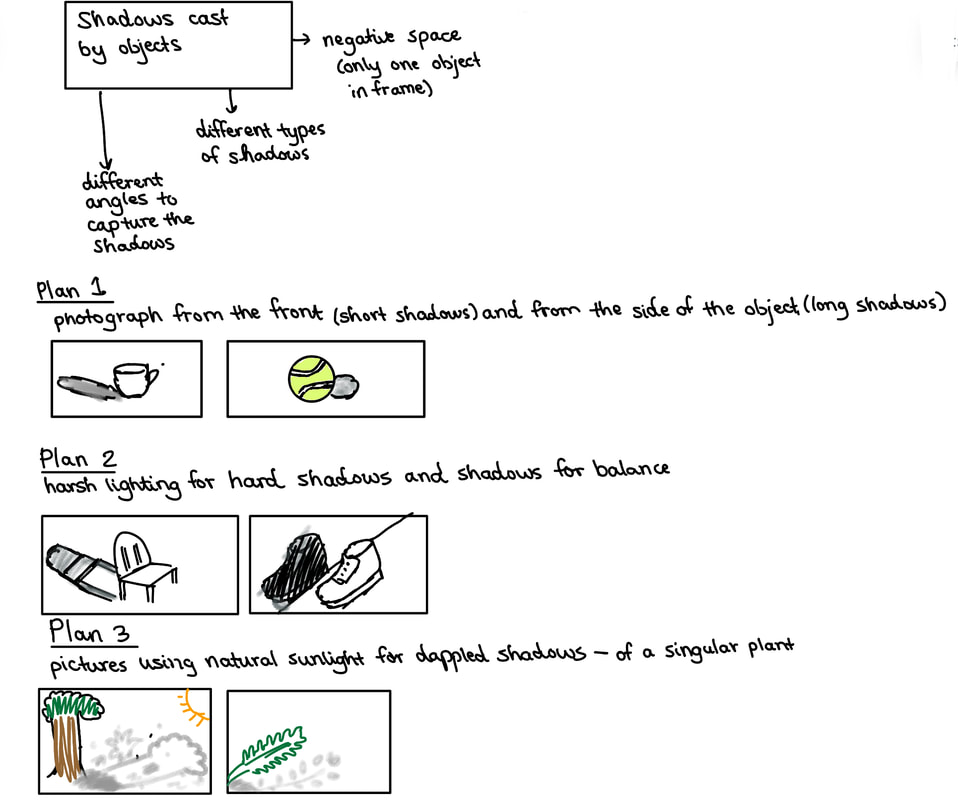 Shadows cast
by objects
→ negative space
(only one object
in frame)
different types
of shadows
different
angles to
capture the
shadows
Plan 1
photograph from the front (short shadows) and from the side of the object (long shadows)
Plan 2
harsh lighting for hard shadows and shadows for balance
Plan 3
pictures using natural sunlight for dappled shadows – of a singular plant